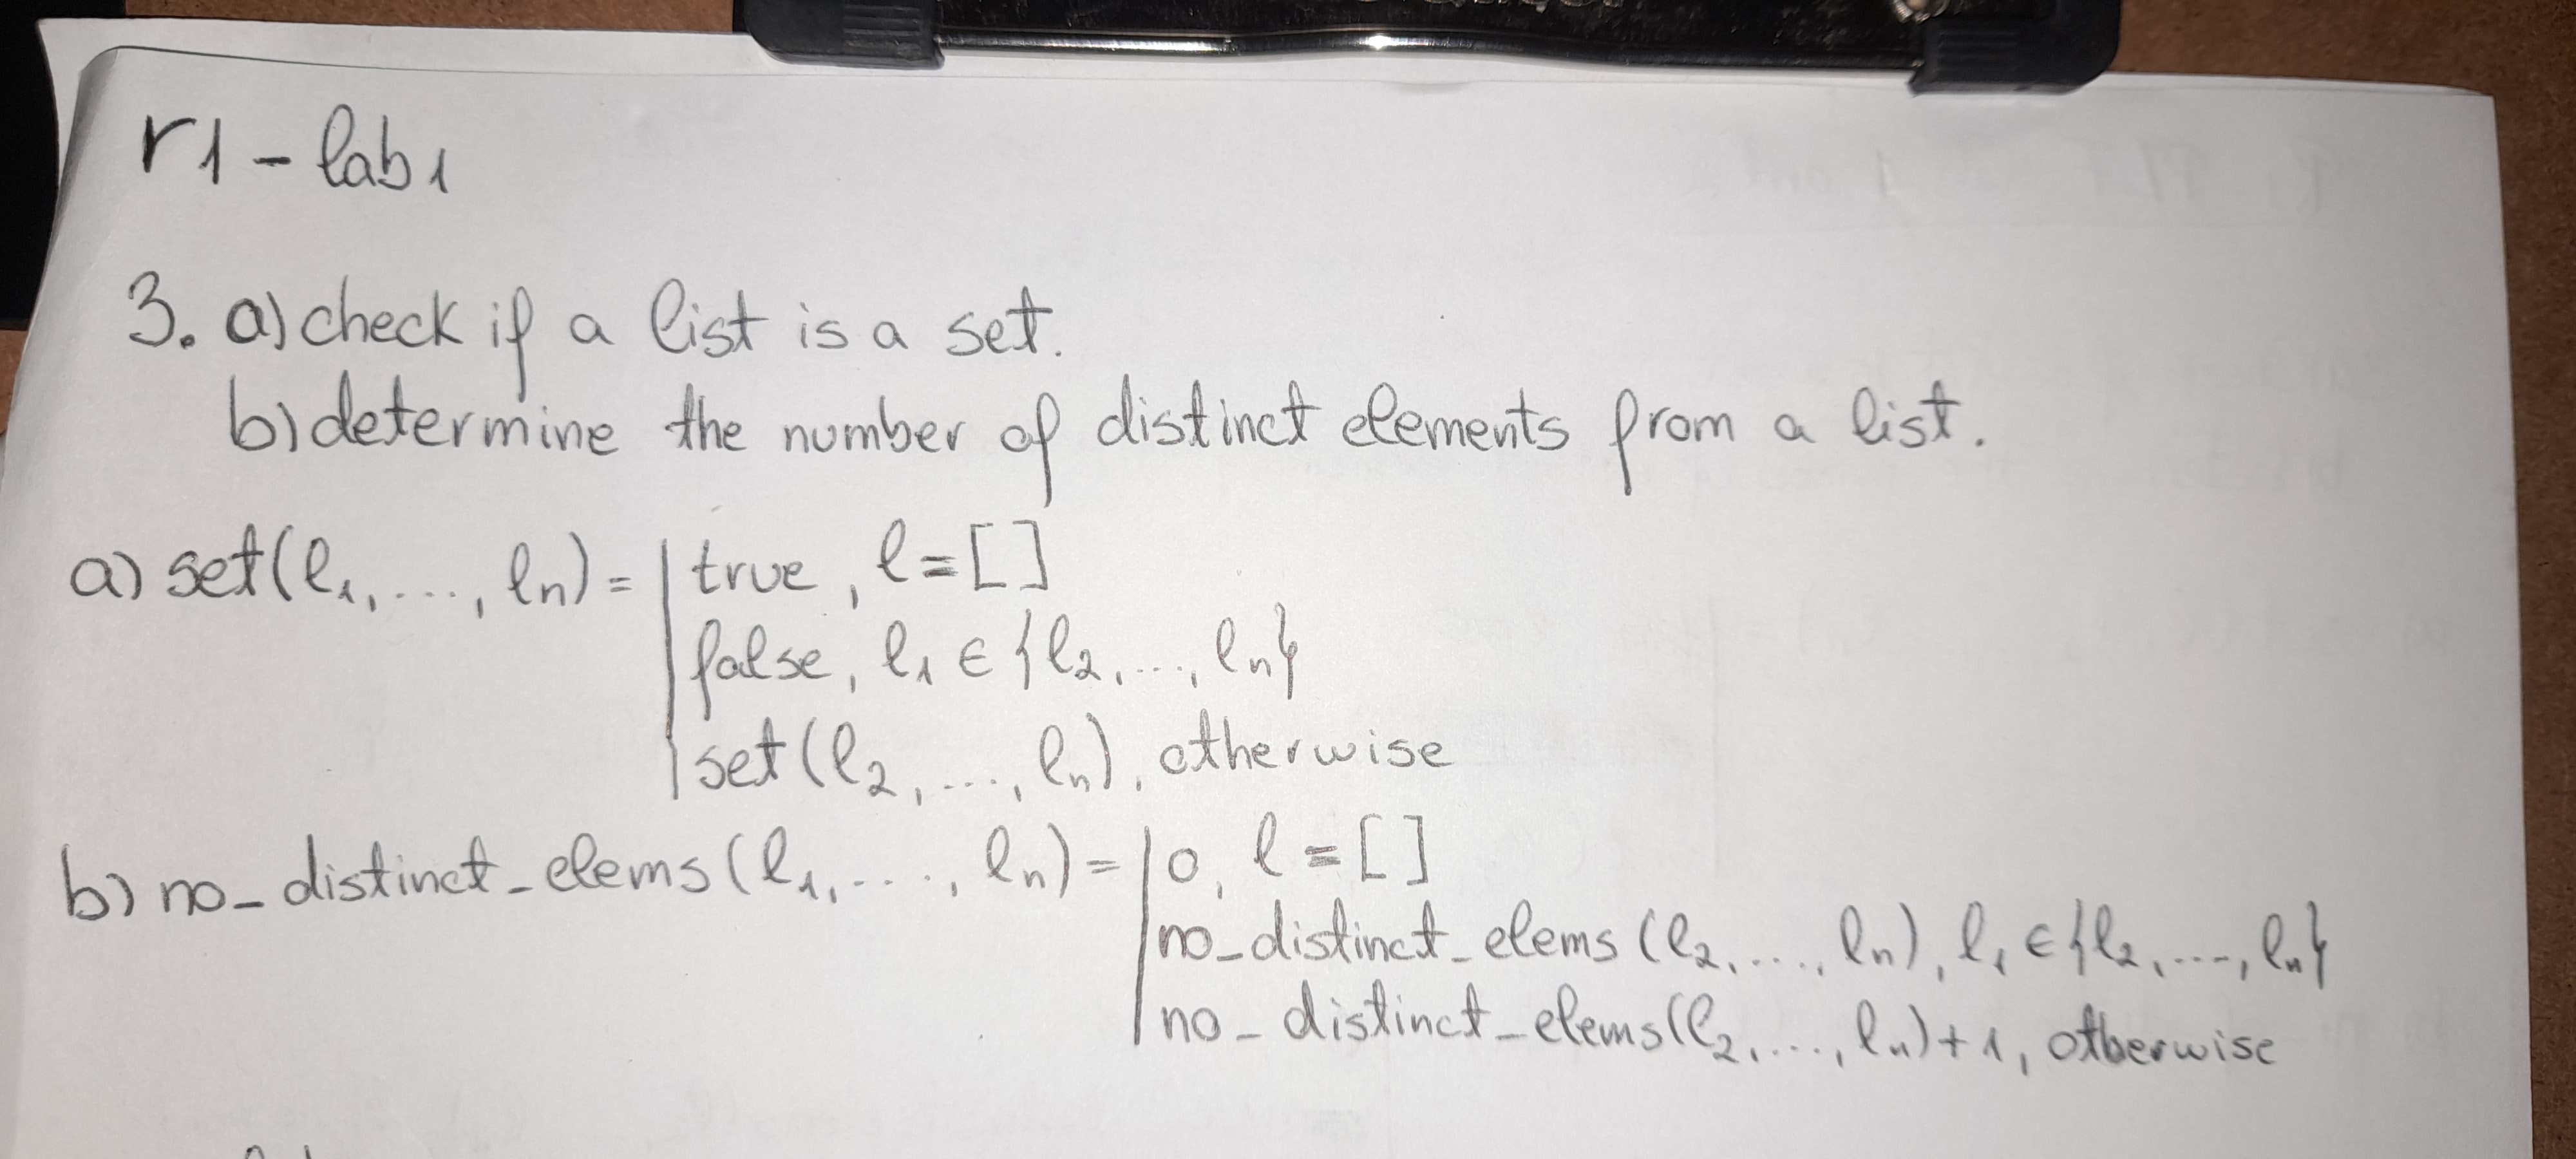 r1 - lab1
3. a) check if a list is a set.
b) determine the number of distinct elements from a list.
a) set(l₁, ..., lₙ) = | true, l = []
| false, l₁ ∈ {l₂, ..., lₙ}
| set(l₂, ..., lₙ), otherwise
b) no_distinct_elems(l₁, ..., lₙ) = | 0, l = []
| no_distinct_elems(l₂, ..., lₙ), l₁ ∈ {l₂, ..., lₙ}
| no_distinct_elems(l₂, ..., lₙ) + 1, otherwise